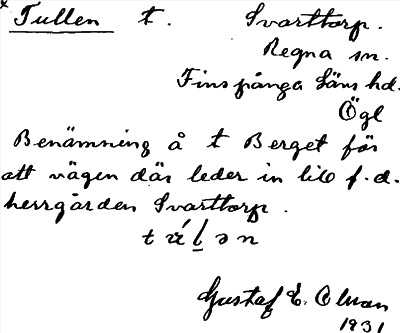 Tullen t. Svarttorp.
Regna sn.
Finspånga läns hd.
Ögl
Benämning å t Berget för
att vägen där leder in till f.d.
herrgården Svarttorp.
Gustaf E. Olman
1931